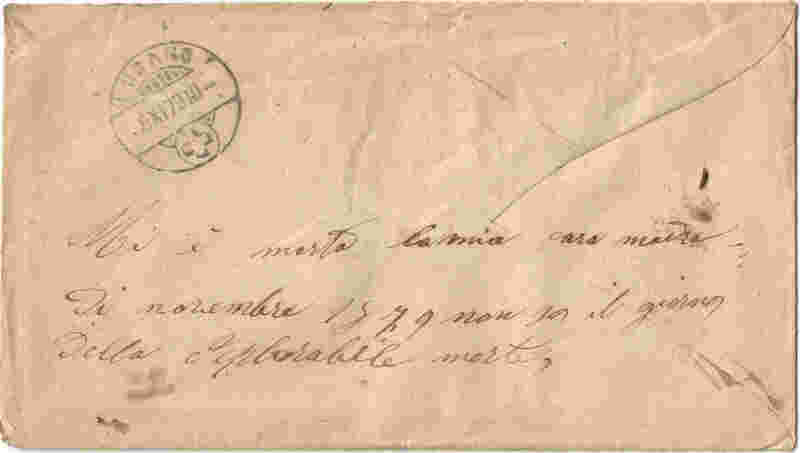 LUGANO
Mi è morta la mia cara madre
di novembre 1879 non so il giorno
della morte,